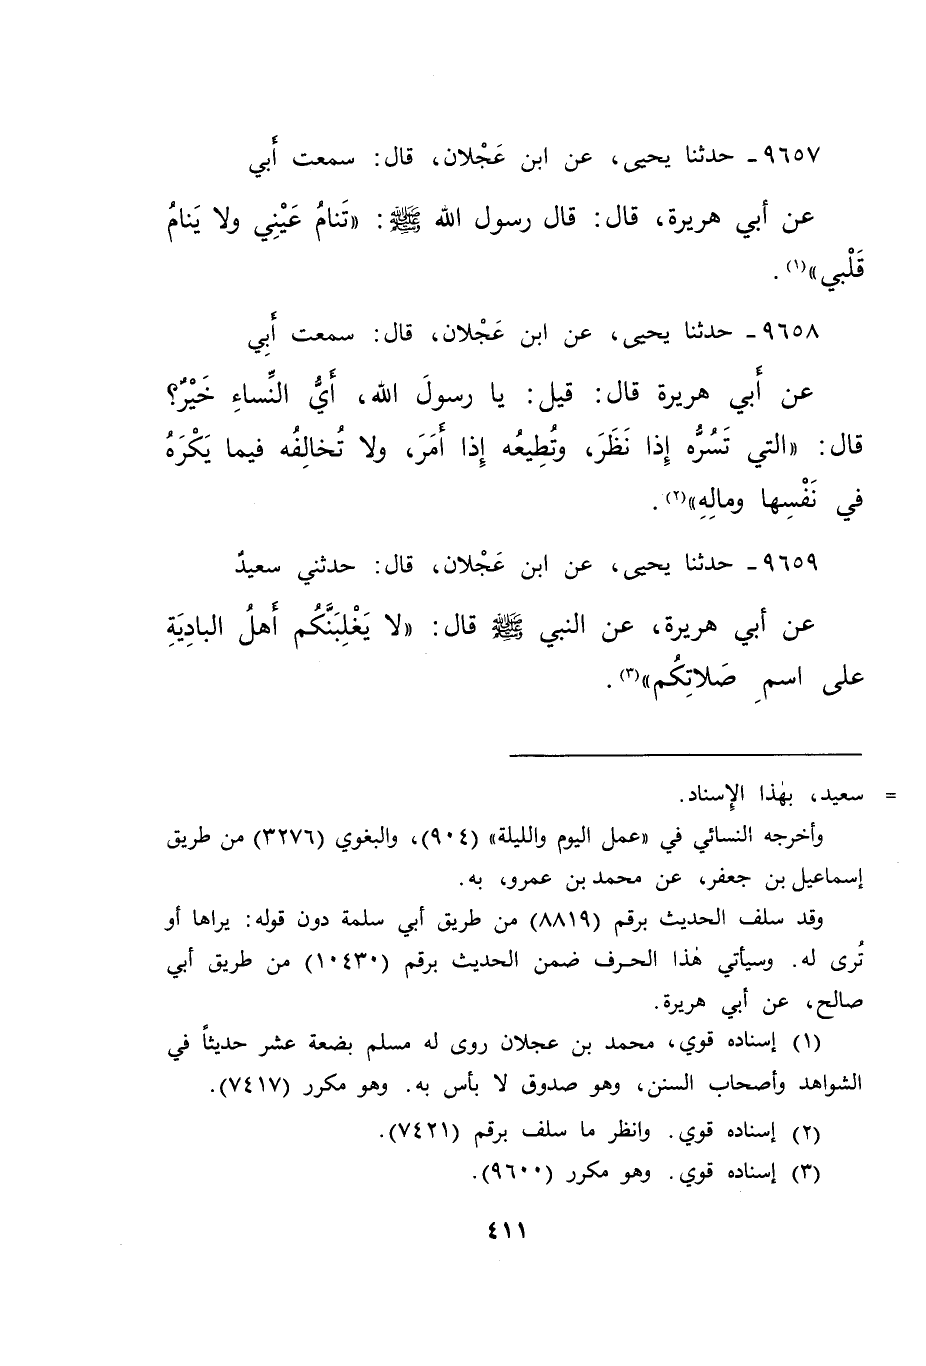 ٩٦٥٧ـ حدثنا يحيى، عن ابن عَجْلان، قال: سمعت أَبي
عن أبي هريرة، قال: قال رسول الله ﷺ: «تَنامُ عَيْنِي ولا يَنامُ
قَلْبي»(١).
٩٦٥٨ـ حدثنا يحيى، عن ابن عَجْلان، قال: سمعت أَبِي
عن أَبي هريرة قال: قيل: يا رسولَ الله، أَيُّ النِّساءِ خَيْرٌ؟
قال: «التي تَسُرُّه إِذا نَظَرَ، وتُطِيعُه إِذا أَمَرَ، ولا تُخالِفُه فيما يَكْرَهُ
في نَفْسِها ومالِهِ»(٢).
٩٦٥٩ـ حدثنا يحيى، عن ابن عَجْلان، قال: حدثني سعيدٌ
عن أبي هريرة، عن النبي ﷺ قال: «لا يَغْلِبَنَّكُم أَهلُ البادِيَةِ
على اسمِ صَلاتِكُم»(٣).
= سعيد، بهٰذا الإِسناد.
وأخرجه النسائي في «عمل اليوم والليلة» (٩٠٤)، والبغوي (٣٢٧٦) من طريق
إسماعيل بن جعفر، عن محمد بن عمرو، به.
وقد سلف الحديث برقم (٨٨١٩) من طريق أبي سلمة دون قوله: يراها أو
تُرى له. وسيأتي هٰذا الحرف ضمن الحديث برقم (١٠٤٣٠) من طريق أبي
صالح، عن أبي هريرة.
(١) إسناده قوي، محمد بن عجلان روى له مسلم بضعة عشر حديثاً في
الشواهد وأصحاب السنن، وهو صدوق لا بأس به. وهو مكرر (٧٤١٧).
(٢) إسناده قوي. وانظر ما سلف برقم (٧٤٢١).
(٣) إسناده قوي. وهو مكرر (٩٦٠٠).
٤١١